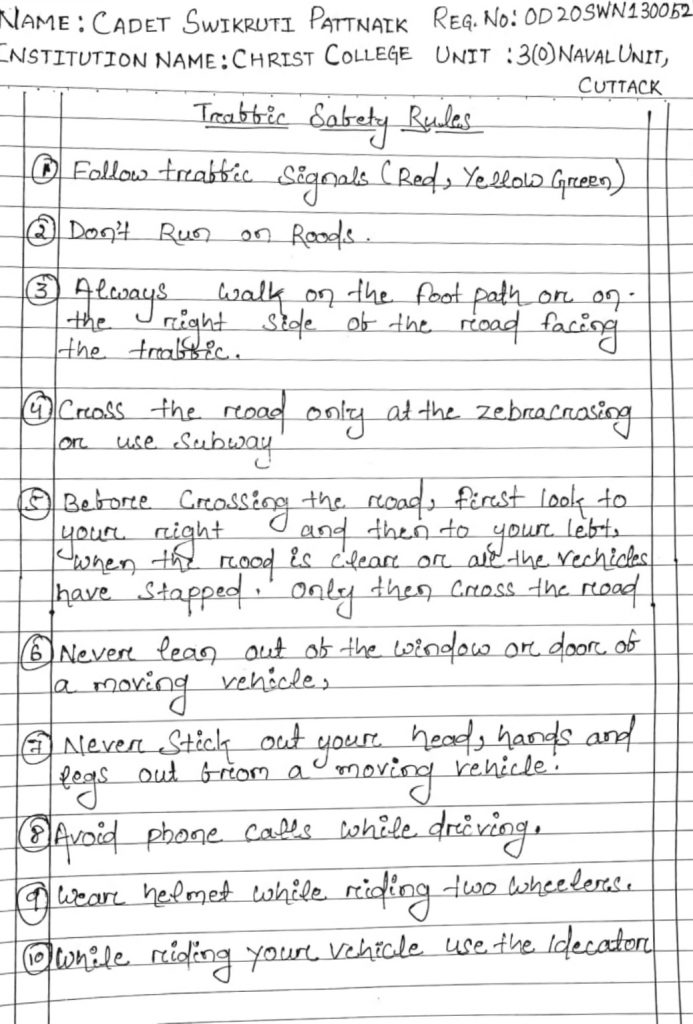 NAME: CADET SWIKRUTI PATTNAIK REG. NO: OD20SWN130052
INSTITUTION NAME: CHRIST COLLEGE UNIT : 3(O) NAVAL UNIT,
CUTTACK
Traffic Safety Rules
1 Follow traffic Signals (Red, Yellow Green)
2 Don't Run on Roads.
3 Always walk on the foot path or on
the right side of the road facing
the traffic.
4 Cross the road only at the zebracrasing
or use Subway
5 Before Crossing the road, first look to
your right and then to your left,
when the road is clear or all the vechicles
have stapped. only then Cross the road
6 Never lean out of the window or door of
a moving vehicle,
7 Never Stick out your head, hands and
legs out from a moving vehicle.
8 Avoid phone calls while driving.
9 Wear helmet while riding two wheelers.
10 While riding your vehicle use the Idecator